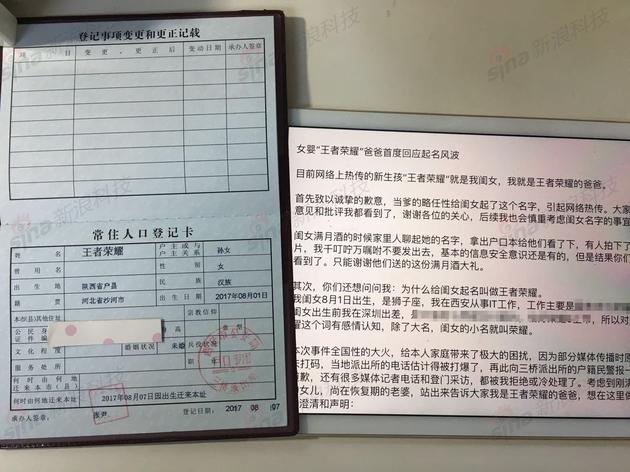 登记事项变更和更正记载
项 目 变更、更正后 变动日期 承办人签章
常住人口登记卡
姓名 王者荣耀 户主或与户主关系 孙女
曾用名 性别 女
出生地 陕西省户县 民族 汉族
籍贯 河北省沙河市 出生日期 2017年08月01日
本市(县)其他住址 宗教信仰
公民身份证件编号 身高
文化程度 婚姻状况 未婚 兵役状况
服务处所
何时由何地迁来本市(县)
何时由何地迁来本址 2017年08月07日因出生迁来本址
承办人签章: 登记日期: 2017 08 07
女婴“王者荣耀”爸爸首度回应起名风波
目前网络上热传的新生孩“王者荣耀”就是我闺女，我就是王者荣耀的爸爸。
首先致以诚挚的歉意，当爹的略任性给闺女起了这个名字，引起网络热传。大家
意见和批评我都看到了，谢谢各位的关心，后续我也会慎重考虑闺女名字的事宜
闺女满月酒的时候家里人聊起她的名字，拿出户口本给他们看了下，有人拍了
片，我千叮咛万嘱咐不要发出去，基本的信息安全意识还是有的，但是结果你们
看到了。只能谢谢他们送的这份满月酒大礼。
其次，你们还想问问我：为什么给闺女起名叫做王者荣耀。
我闺女8月1日出生，是狮子座，我在西安从事IT工作，工作主要是
闺女出生前我在深圳出差，
耀这个词有感情认知，除了大名，闺女的小名就叫荣耀。
本次事件全国性的大火，给本人家庭带来了极大的困扰，因为部分媒体传播时原
未打码，当地派出所的电话估计得被打爆了，再此向三桥派出所的户籍民警报一
歉，还有很多媒体记者电话和登门采访，都被我拒绝或冷处理了。考虑到刚满
女儿，尚在恢复期的老婆，站出来告诉大家我是王者荣耀的爸爸，想在这里做
澄清和声明：
sina新浪科技